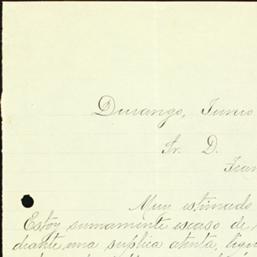 Durango, Junio
Sr. D.
Fran
Muy estimado
Estoy sumamente escaso de
diante, una suplica atenta,